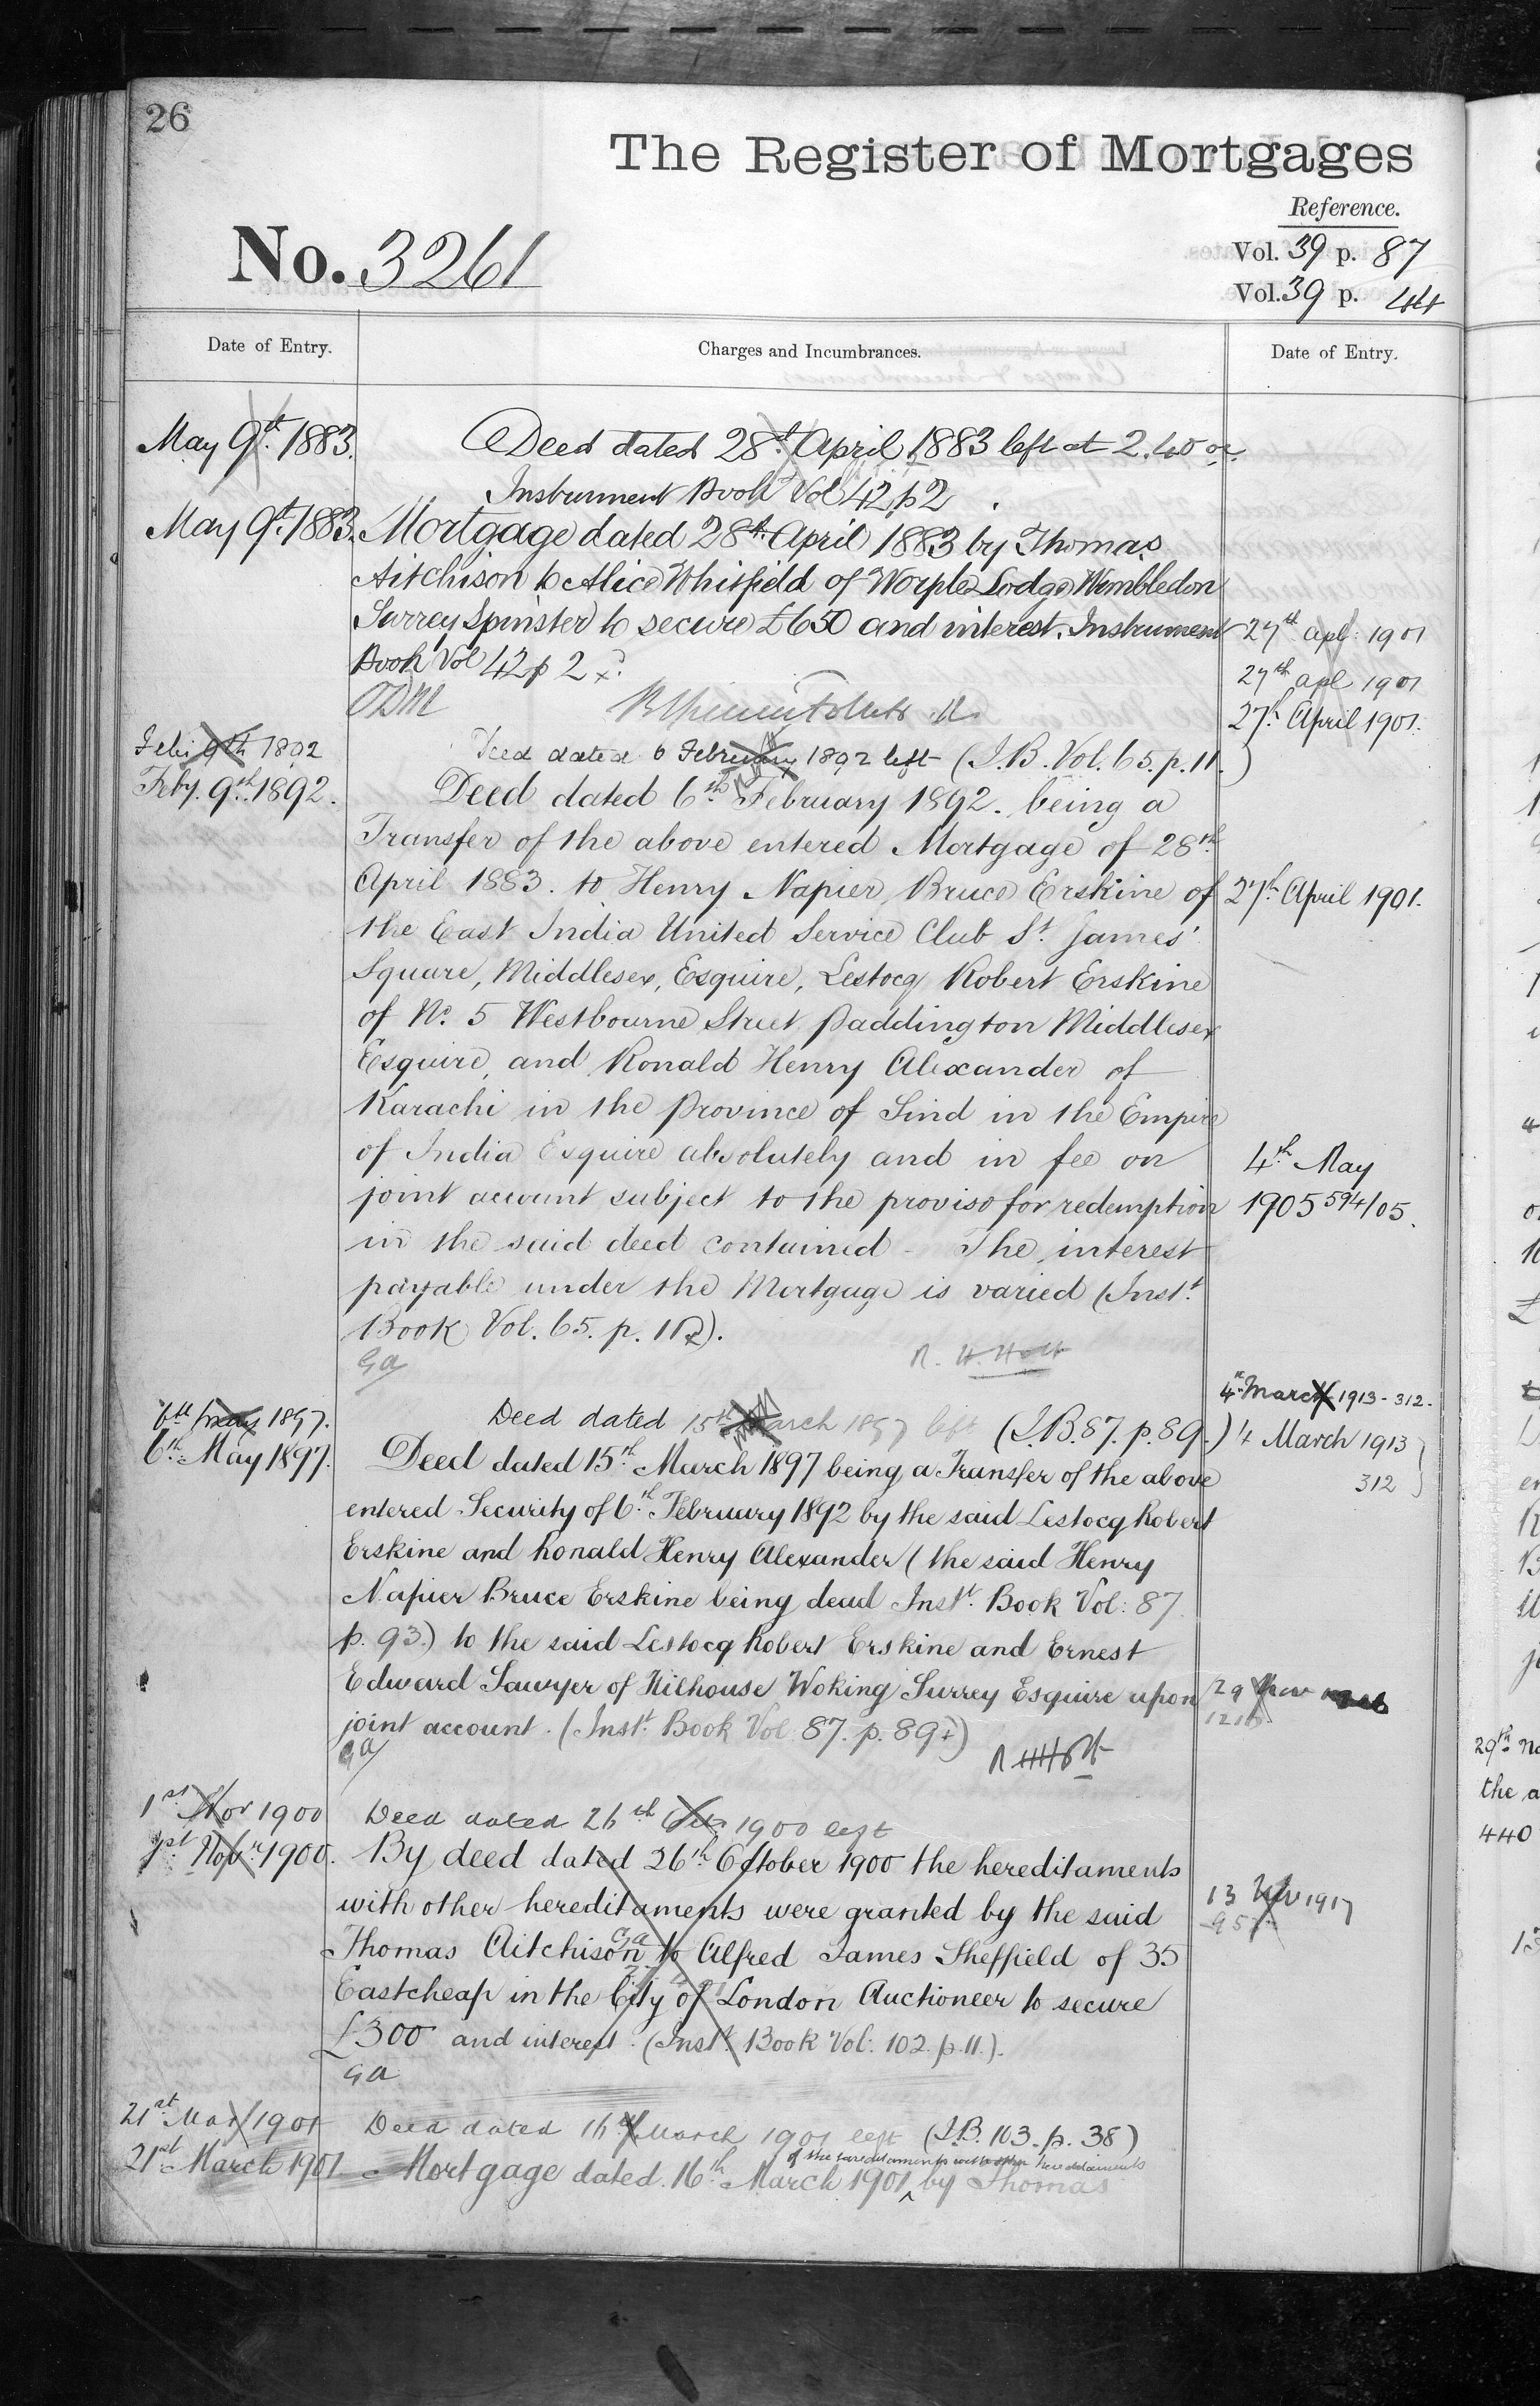 26
The Register of Mortgages
Reference.
No. 3261
Vol. 39 p. 87
Vol. 39 p. 44
Date of Entry.
Charges and Incumbrances.
Date of Entry.
May 9th 1883.
Deed dated 28th April 1883 left at 2.40
Instrument Book Vol 42 p 2
May 9th 1883.
Mortgage dated 28th April 1883 by Thomas
Aitchison to Alice Whitfield of Worple Lodge Wimbledon
Surrey Spinster to secure £650 and interest. Instrument
Book Vol 42 p 2
27th Apl 1901
27th Apl 1901
27th April 1901.
Feb 9th 1892
Deed dated 6 February 1892 left (I.B. Vol. 65. p. 11.)
Feby. 9th 1892.
Deed dated 6th February 1892. being a
Transfer of the above entered Mortgage of 28th
April 1883. to Henry Napier Bruce Erskine of
27th April 1901.
the East India United Service Club St. James'
Square, Middlesex, Esquire, Lestocq Robert Erskine
of No. 5 Westbourne Street Paddington Middlesex
Esquire, and Ronald Henry Alexander of
Karachi in the Province of Sind in the Empire
of India Esquire absolutely and in fee on
joint account subject to the proviso for redemption
4th May
1905 594/05.
in the said deed contained - The interest
payable under the Mortgage is varied (Inst.t
Book Vol. 65. p. 11).
GA
4th March 1913 - 312.
6th May 1897.
Deed dated 15th March 1897 left (I.B. 87. p. 89.)
4 March 1913
312
6th May 1897.
Deed dated 15th March 1897 being a Transfer of the above
entered Security of 6th February 1892 by the said Lestocq Robert
Erskine and Ronald Henry Alexander (the said Henry
Napier Bruce Erskine being dead Inst.t Book Vol: 87.
p. 93.) to the said Lestocq Robert Erskine and Ernest
Edward Sawyer of Hilhouse Woking Surrey Esquire upon
29 Nov
joint account. (Inst.t Book Vol 87. p. 89)
GA
1st Nov 1900
Deed dated 26th Oct 1900 left
1st Novr 1900.
By deed dated 26th October 1900 the hereditaments
with other hereditaments were granted by the said
13 Nov 1917
Thomas Aitchison to Alfred James Sheffield of 35
Eastcheap in the City of London Auctioneer to secure
£300 and interest. (Inst.t Book Vol: 102. p. 11.).
GA
21st Mar 1901
Deed dated 16th March 1901 left (I.B. 103. p. 38)
21st March 1901
of the hereditaments with other hereditaments
Mortgage dated 16th March 1901 ^ by Thomas
29th
the a
440